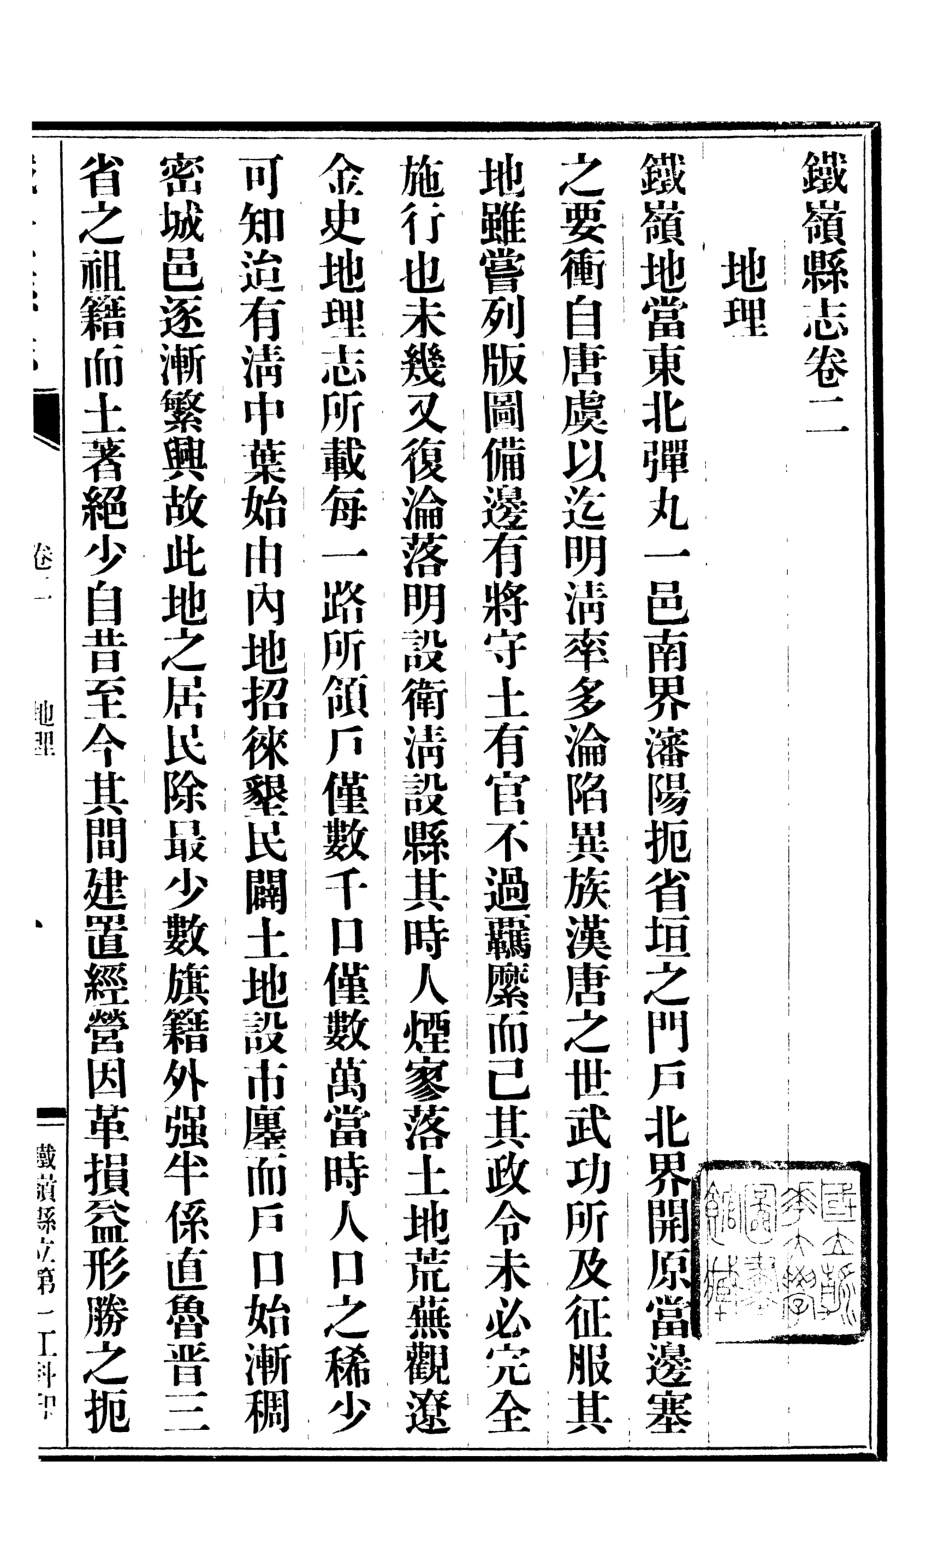 鐵嶺縣志卷二
地理
鐵嶺地當東北彈丸一邑南界瀋陽扼省垣之門戶北界開原當邊塞
之要衝自唐虞以迄明淸率多淪陷異族漢唐之世武功所及征服其
地雖嘗列版圖備邊有將守土有官不過羈縻而已其政令未必完全
施行也未幾又復淪落明設衛淸設縣其時人煙寥落土地荒蕪觀遼
金史地理志所載每一路所領戶僅數千口僅數萬當時人口之稀少
可知迨有淸中葉始由內地招徠墾民闢土地設市廛而戶口始漸稠
密城邑逐漸繁興故此地之居民除最少數旗籍外强半係直魯晋三
省之祖籍而土著絕少自昔至今其間建置經營因革損益形勝之扼
卷二
地理
鐵嶺縣立第一工科印